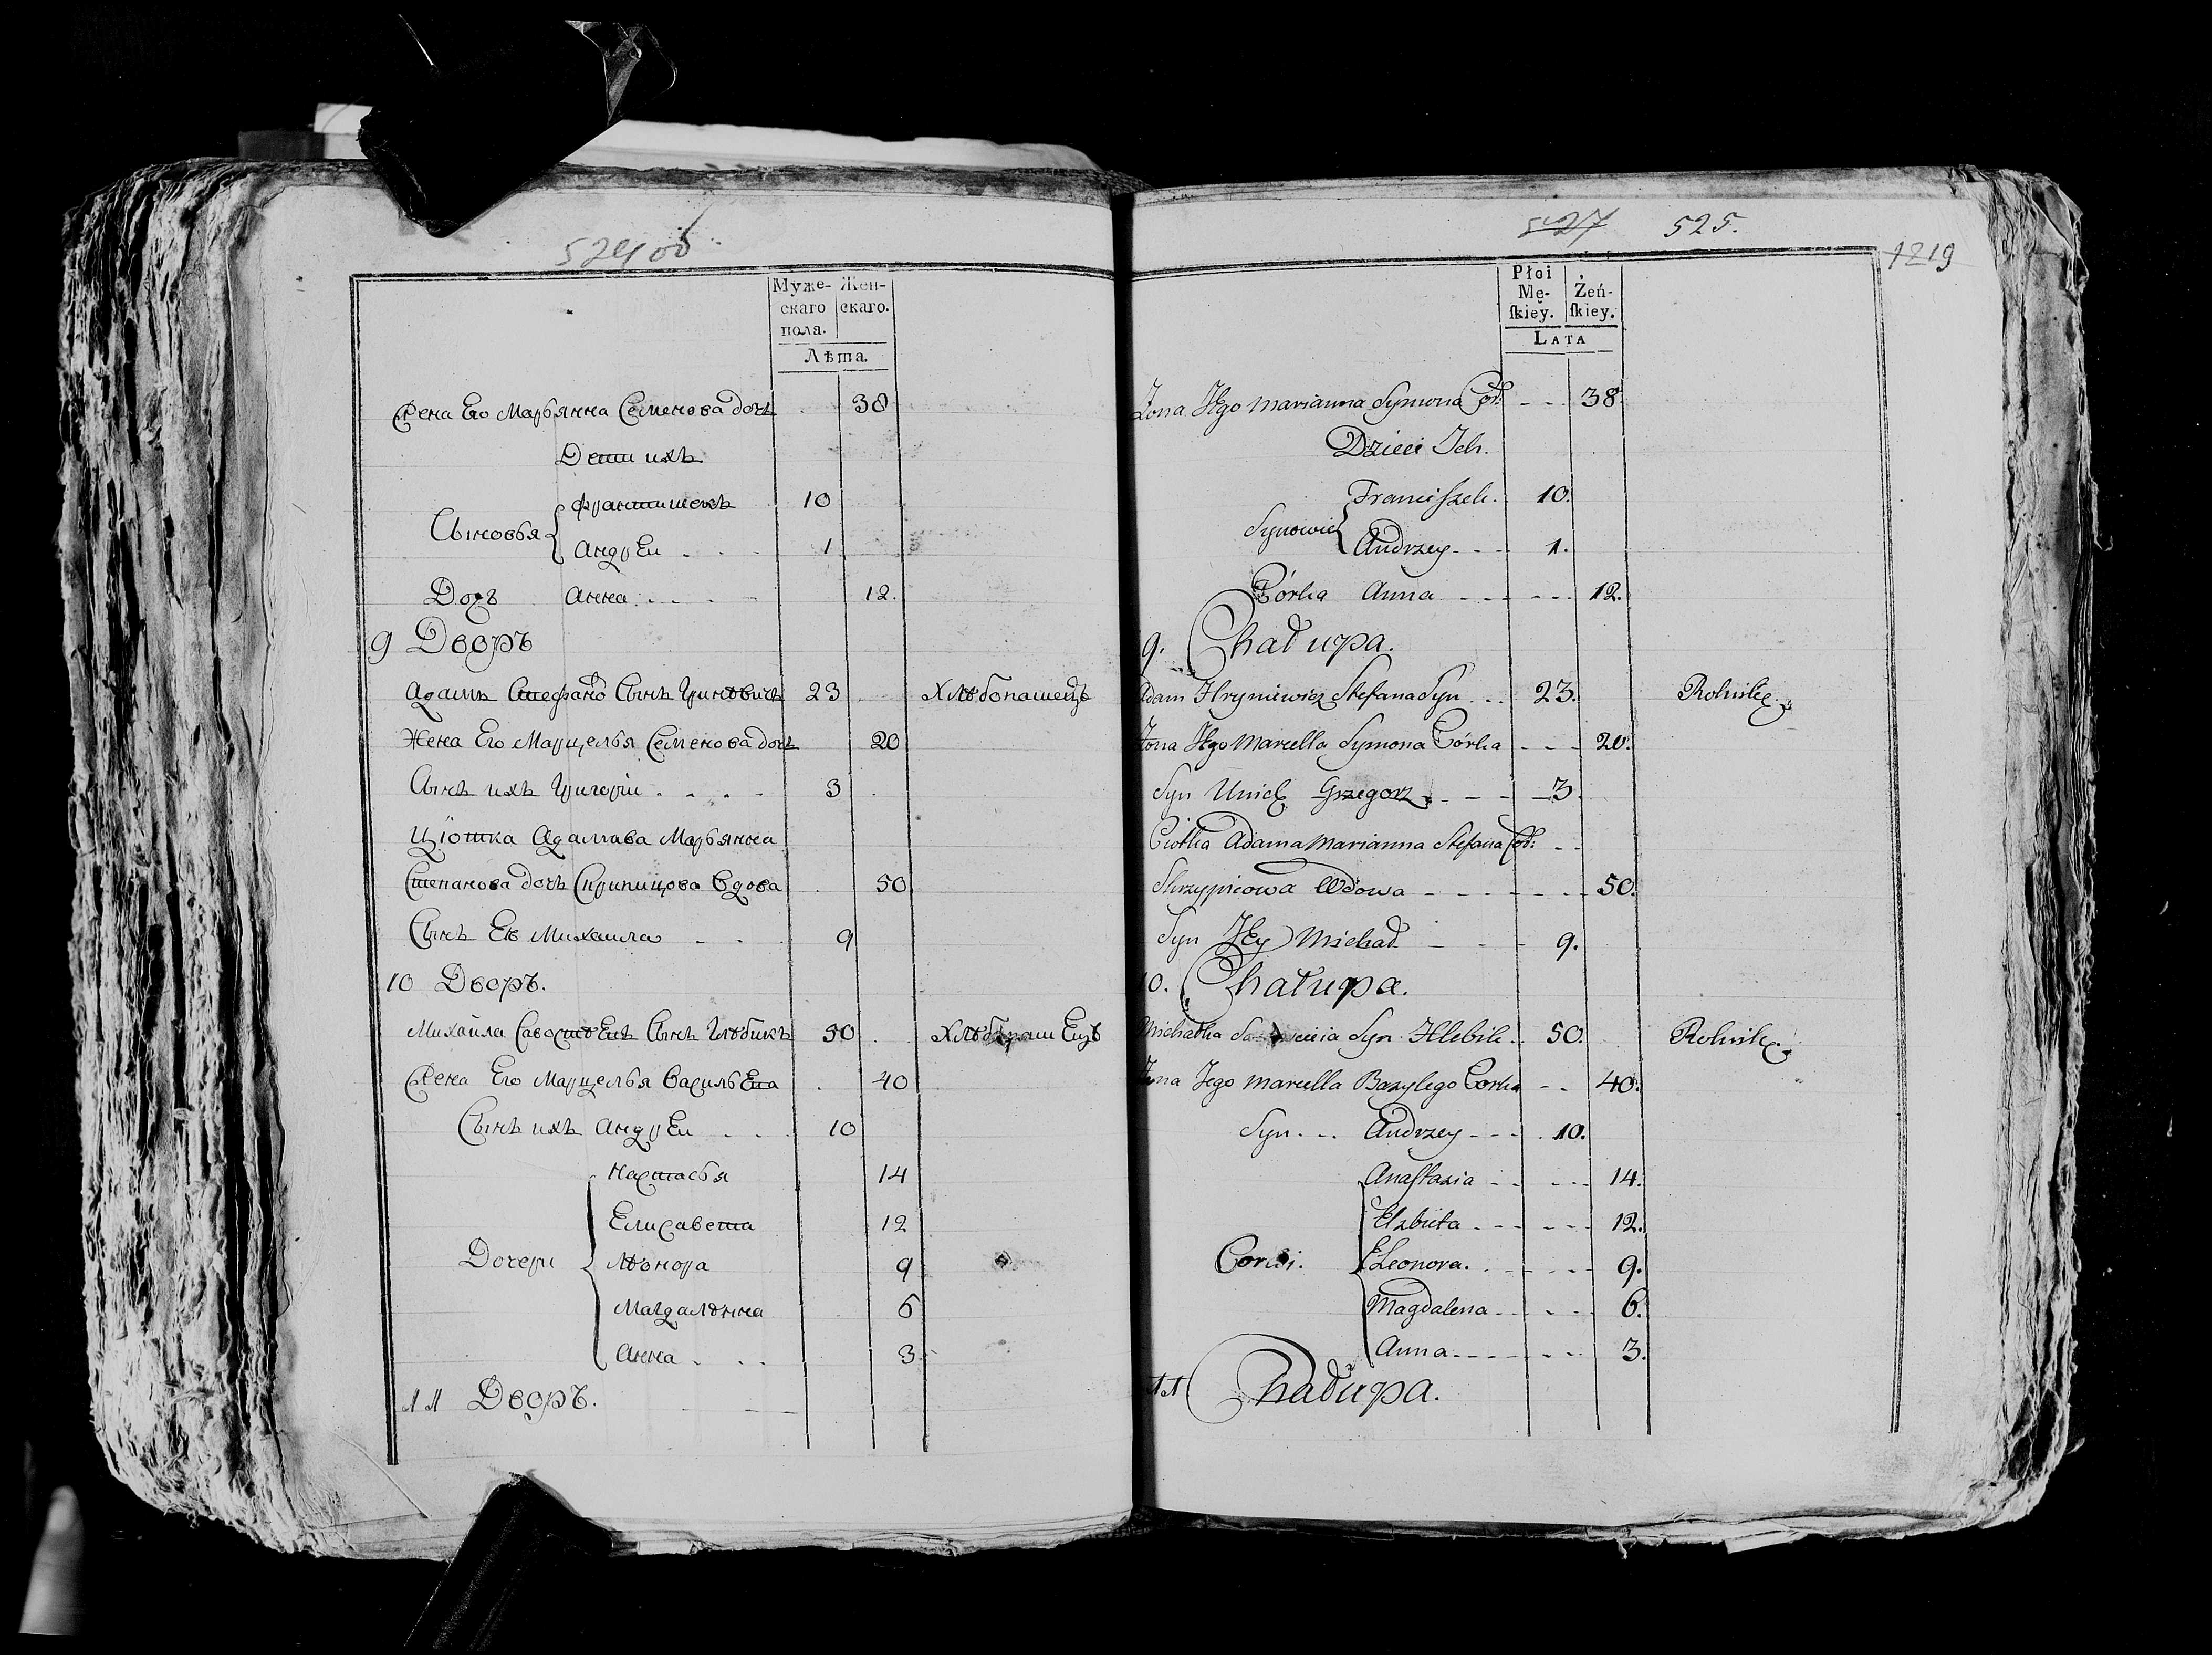 524 об
Муже-
скаго
пола.
Жен-
скаго.
Лѣта.
Жена Его Марьянна Семенова дочь 38
Дети ихъ
Сыновья
Францишекъ 10
Андрей 1
Дочь Анна 12.
9 Дворъ
Адамъ Стефановъ Сынъ Гриневичъ 23 Хлѣбопашецъ
Жена Его Марцелья Семенова дочь 20
Сынъ ихъ Григорiи 3
Цiотка Адамава Марьянна
Степанова дочь Скрипицова Вдова 50
Сынъ Еѣ Михаила 9
10 Дворъ.
Михайла Савостѣевъ Сынъ Глѣбикъ 50 Хлѣбопашецъ
Жена Его Марцелья Васильева 40
Сынъ ихъ Андрей 10
Дочери
Настасья 14
Елисавета 12
Лѣонора 9
Магдалѣнна 6
Анна 3
11 Дворъ.
527 525.
1219
Płci
Mę-
ſkiey.
Żeń-
ſkiey.
LATA
Żona Jego Marianna Symona Cór: 38.
Dzieci Ich.
Synowie
Franciſzek. 10.
Andrzey 1.
Córka Anna 12.
9. Chałupa.
Adam Hryniewicz Stefana Syn 23. Rolnik
Żona Jego Marcella Symona Córka 20.
Syn Unich Grzegorz 3.
Ciotka Adama Marianna Stefana Cór:
Skrzypicowa Wdowa 50.
Syn Jey Michał 9.
10. Chałupa.
Michałka Syn Hlebik 50. Rolnik
Żona Jego Marcella Bazylego Corka 40.
Syn Andrzey 10.
Corki.
Anaſtazia 14.
Elzbieta 12.
Eleonora. 9.
Magdalena 6.
Anna 3.
11 Chałupa.